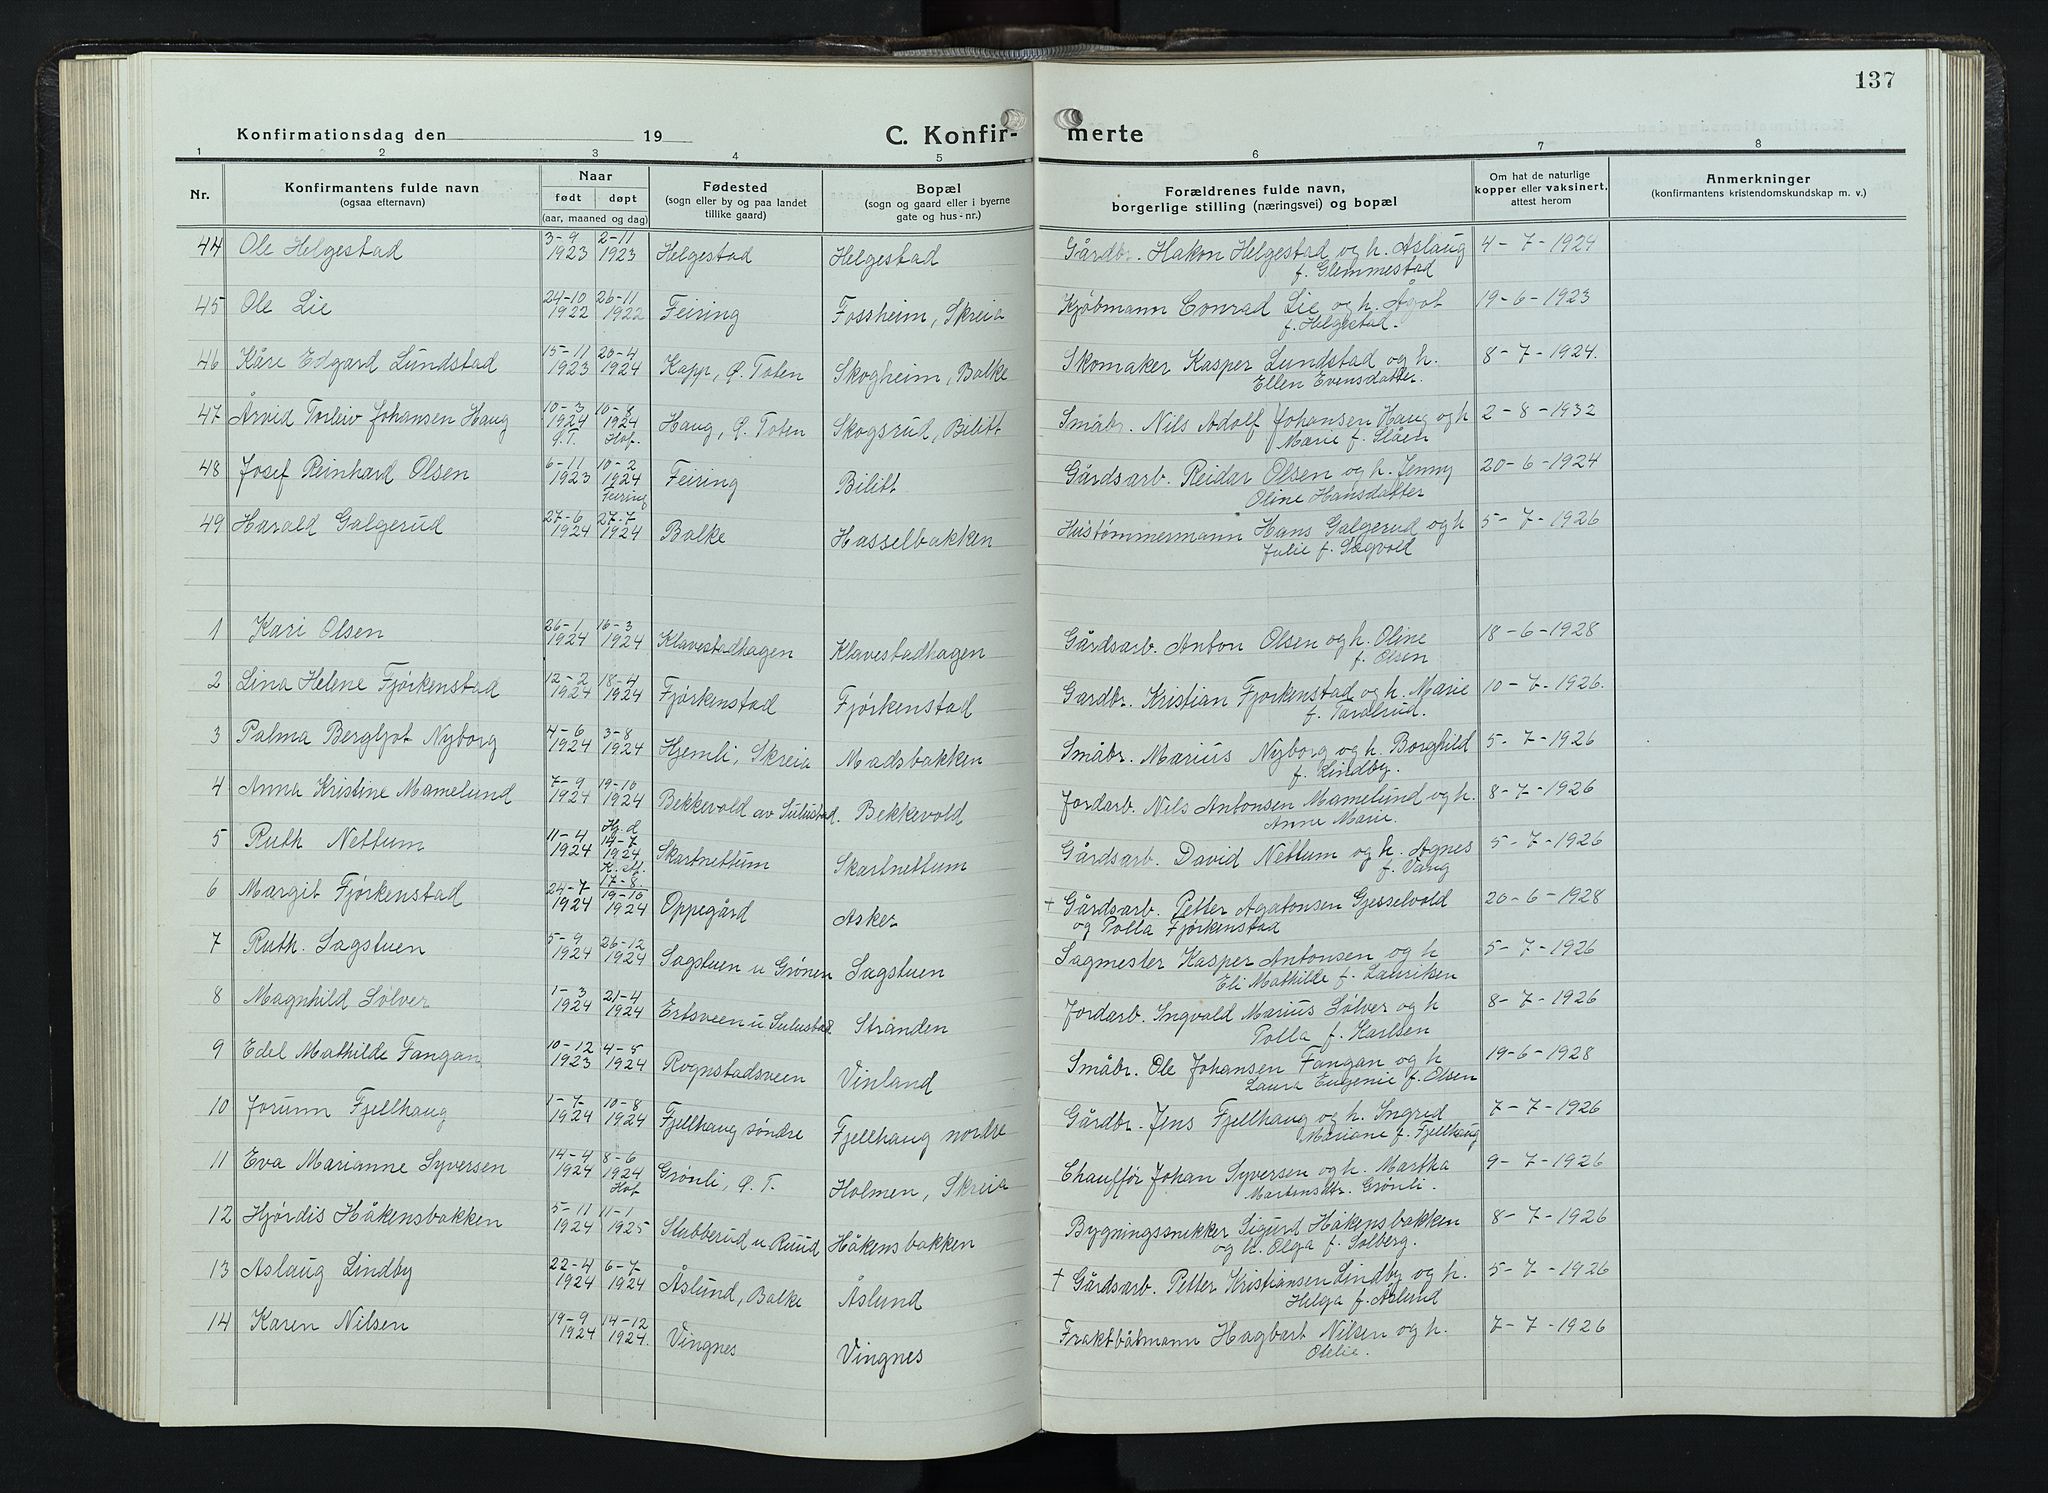 137
Konfirmationsdag den 19
C. Konfir- merte
1 2 3 4 5 6 7 8
Nr.
Konfirmantens fulde navn
(ogsaa efternavn)
Naar
født døpt
(aar, maaned og dag)
Fødested
(sogn eller by og paa landet
tillike gaard)
Bopæl
(sogn og gaard eller i byerne
gate og hus-nr.)
Forældrenes fulde navn,
borgerlige stilling (næringsvei) og bopæl
Om hat de naturlige
kopper eller vaksinert,
attest herom
Anmerkninger
(konfirmantens kristendomskundskap m. v.)
44 Ole Helgestad 3-9 1923 2-11 1923 Helgestad Helgestad Gårdbr. Hakon Helgestad og h. Aslaug 4-7-1924
f. Glemmestad
45 Ole Lie 24-10 1922 26-11 1922 Feiring Fossheim, Skreia Kjøbmann Conrad Lie og h. Ågot 19-6-1923
f. Helgestad.
46 Kåre Edgard Lundstad 15-11 1923 20-4 1924 Kapp, Ø. Toten Skogheim, Balke Skomaker Kasper Lundstad og h. 8-7-1924.
Ellen Evensdatter.
47 Arvid Torleiv Johansen Haug 10-3 1924 Ø.T. 10-8 1924 Hof. Haug, Ø. Toten Skogsrud, Bilitt Småbr. Nils Adolf Johansen Haug og h 2-8-1932
Marie f. Slåen
48 Josef Reinhard Olsen 6-11 1923 10-2 1924 Feiring Feiring Bilitt Gårdsarb. Reidar Olsen og h. Jenny 20-6-1924
Oline Hansdatter
49 Harald Galgerud 27-6 1924 27-7 1924 Balke Hasselbakken Hustømmermann Hans Galgerud og h 5-7-1926
Julie f. Sagvold
1 Kari Olsen 26-1 1924 16-3 1924 Klavestadhagen Klavestadhagen Gårdsarb. Anton Olsen og h. Oline 18-6-1928
f. Olsen
2 Lina Helene Fjørkenstad 12-2 1924 18-4 1924 Fjørkenstad Fjørkenstad Gardbr. Kristian Fjørkenstad og h. Marie 10-7-1926.
f. Taralrud.
3 Palma Bergljot Nyborg 4-6 1924 3-8 1924 Hjemli, Skreia Madsbakken Småbr. Marius Nyborg og h. Borghild 5-7-1926
f. Lindby.
4 Anna Kristine Mamelund 7-9 1924 19-10 1924 Bekkevold av Sulustad. Bekkevold Jordarb. Nils Antonsen Mamelund og h. 8-7-1926
Anne Marie.
5 Ruth Nettum 11-4 1924 Hj. d 14-7 1924 K. st. 17-8 Skartnettum Skartnettum Gårdsarb. David Nettum og h. Agnes 5-7-1926
f. Vang
6 Margit Fjørkenstad 24-7 1924 19-10 1924 Oppegård Asker + Gårdsarb. Petter Agatonsen Gjesselvold 20-6-1928
og Polla Fjørkenstad
7 Ruth. Sagstuen 5-9 1924 26-12 1924 Sagstuen u Grønen Sagstuen Sagmester Kasper Antonsen og h 5-7-1926
Eli Mathilde f. Lauriken
8 Magnhild Sølver 1-3 1924 21-4 1924 Ertsveen u Sulustad Stranden Jordarb. Ingvald Marius Sølver og h 8-7-1926
Polla f. Karlsen
9 Edel Mathilde Fangan 10-12 1923 4-5 1924 Rognstadsveen Vinland Småbr. Ole Johansen Fangan og h 19-6-1928
Laura Eugenie f. Olsen
10 Jorunn Fjellhaug 1-7- 1924 10-8 1924 Fjellhaug søndre Fjellhaug nordre Gårdbr. Jens Fjellhaug og h. Ingrid 7-7-1926
Mariane f. Fjellhaug
11 Eva Marianne Syversen 14-4 1924 8-6 1924 Hof Grønli, Ø. T. Holmen, Skreia Chauffør Johan Syversen og h. Martha 9-7-1926
Martensdtr. Grønli.
12 Hjørdis Håkensbakken 5-11 1924 11-1 1925 Stabberud u Ruud Håkensbakken Bygningssnikker Sigurd Håkensbakken 8-7-1926
og h. Olga f. Solberg.
13 Aslaug Lindby 22-4 1924 6-7- 1924 Åslund, Balke Åslund + Gårdsarb. Petter Kristiansen Lindby og h. 5-7-1926
Helga f. Åslund
14 Karen Nilsen 19-9 1924 14-12 1924. Vingnes Vingnes Fraktbåtmann Hagbart Nilsen og h. 7-7-1926